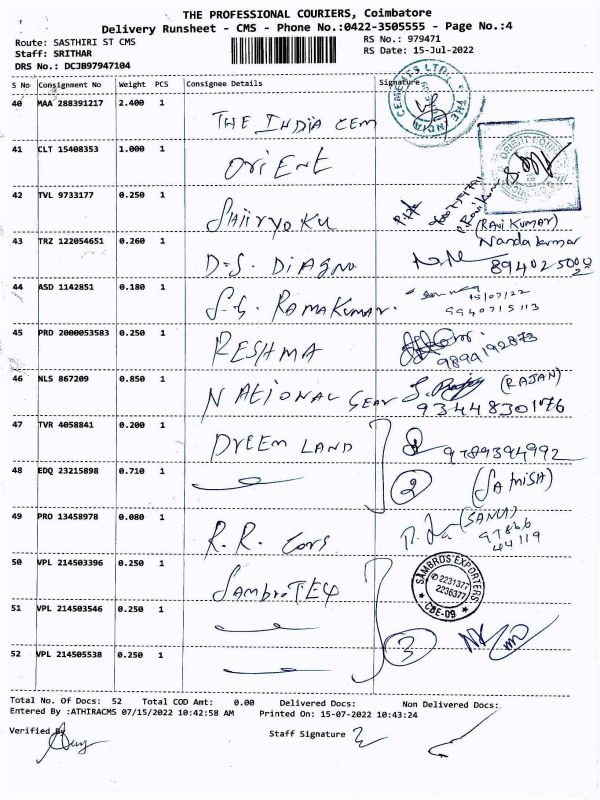 THE PROFESSIONAL COURIERS, Coimbatore
Delivery Runsheet - CMS - Phone No.:0422-3505555 - Page No.:4
Route: SASTHIRI ST CMS
RS No.: 979471
Staff: SRITHAR
RS Date: 15-Jul-2022
DRS No.: DCJB97947104
S No Consignment No Weight PCS Consignee Details Signature
40 MAA 288391217 2.400 1 THE INDIA CEM
CEMENTS LTD. THE INDIA
41 CLT 15408353 1.000 1 ORIENT
42 TVL 9733177 0.250 1 SHIIRYOKU
(RAVI KUMAR)
43 TRZ 122054651 0.260 1 D.S. DIAGNO
Nandakumar
44 ASD 1142851 0.180 1 S.S. RAMAKUMAR.
15/07/22
9940715113
45 PRD 2000053583 0.250 1 RESHMA
9894192873
46 NLS 867209 0.850 1 NATIONAL GEAR
(RAJAN)
9344830176
47 TVR 4058841 0.200 1 DREEM LAND
9789394992
48 EDQ 23215898 0.710 1
2
(SATHISH)
49 PRO 13458978 0.080 1 R.R. Cors
(SANU)
97866
44119
50 VPL 214503396 0.250 1 SambroTEX
SAMBROS EXPORTERS
2231377
2236377
CBE-09
51 VPL 214503546 0.250 1
52 VPL 214505538 0.250 1
3
Total No. Of Docs: 52 Total COD Amt: 0.00 Delivered Docs: Non Delivered Docs:
Entered By :ATHIRACMS 07/15/2022 10:42:58 AM Printed On: 15-07-2022 10:43:24
Verified By
Staff Signature